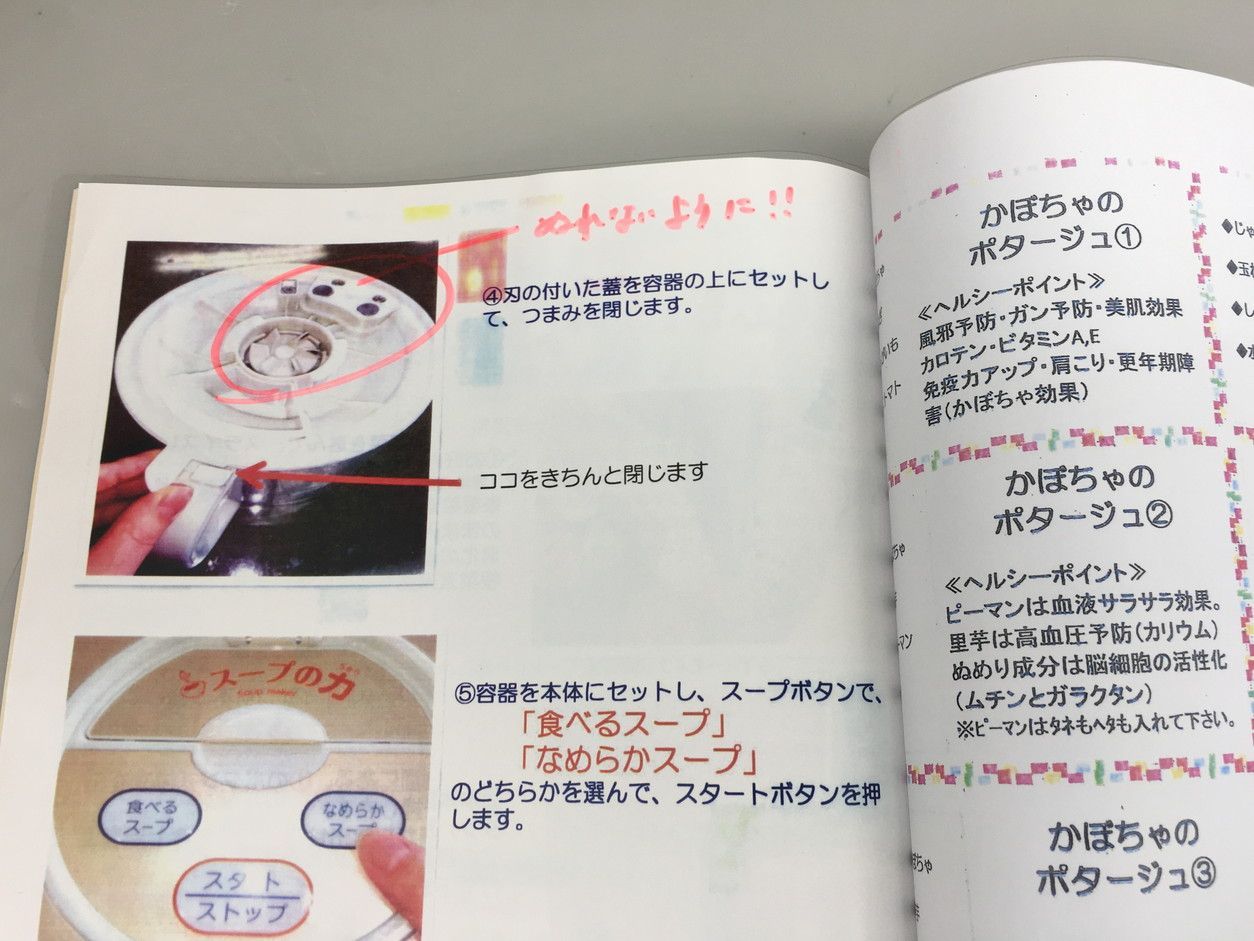 ぬれないように!!
④刃の付いた蓋を容器の上にセットし
て、つまみを閉じます。
ココをきちんと閉じます
スープの力
soup maker
食べる
スープ
なめらか
スープ
スタート
ストップ
⑤容器を本体にセットし、スープボタンで、
「食べるスープ」
「なめらかスープ」
のどちらかを選んで、スタートボタンを押
します。
かぼちゃの
ポタージュ①
≪ヘルシーポイント≫
風邪予防・ガン予防・美肌効果
カロテン・ビタミンA,E
免疫力アップ・肩こり・更年期障
害(かぼちゃ効果)
かぼちゃの
ポタージュ②
≪ヘルシーポイント≫
ピーマンは血液サラサラ効果。
里芋は高血圧予防(カリウム)
ぬめり成分は脳細胞の活性化
(ムチンとガラクタン)
※ピーマンはタネもヘタも入れて下さい。
かぼちゃの
ポタージュ③